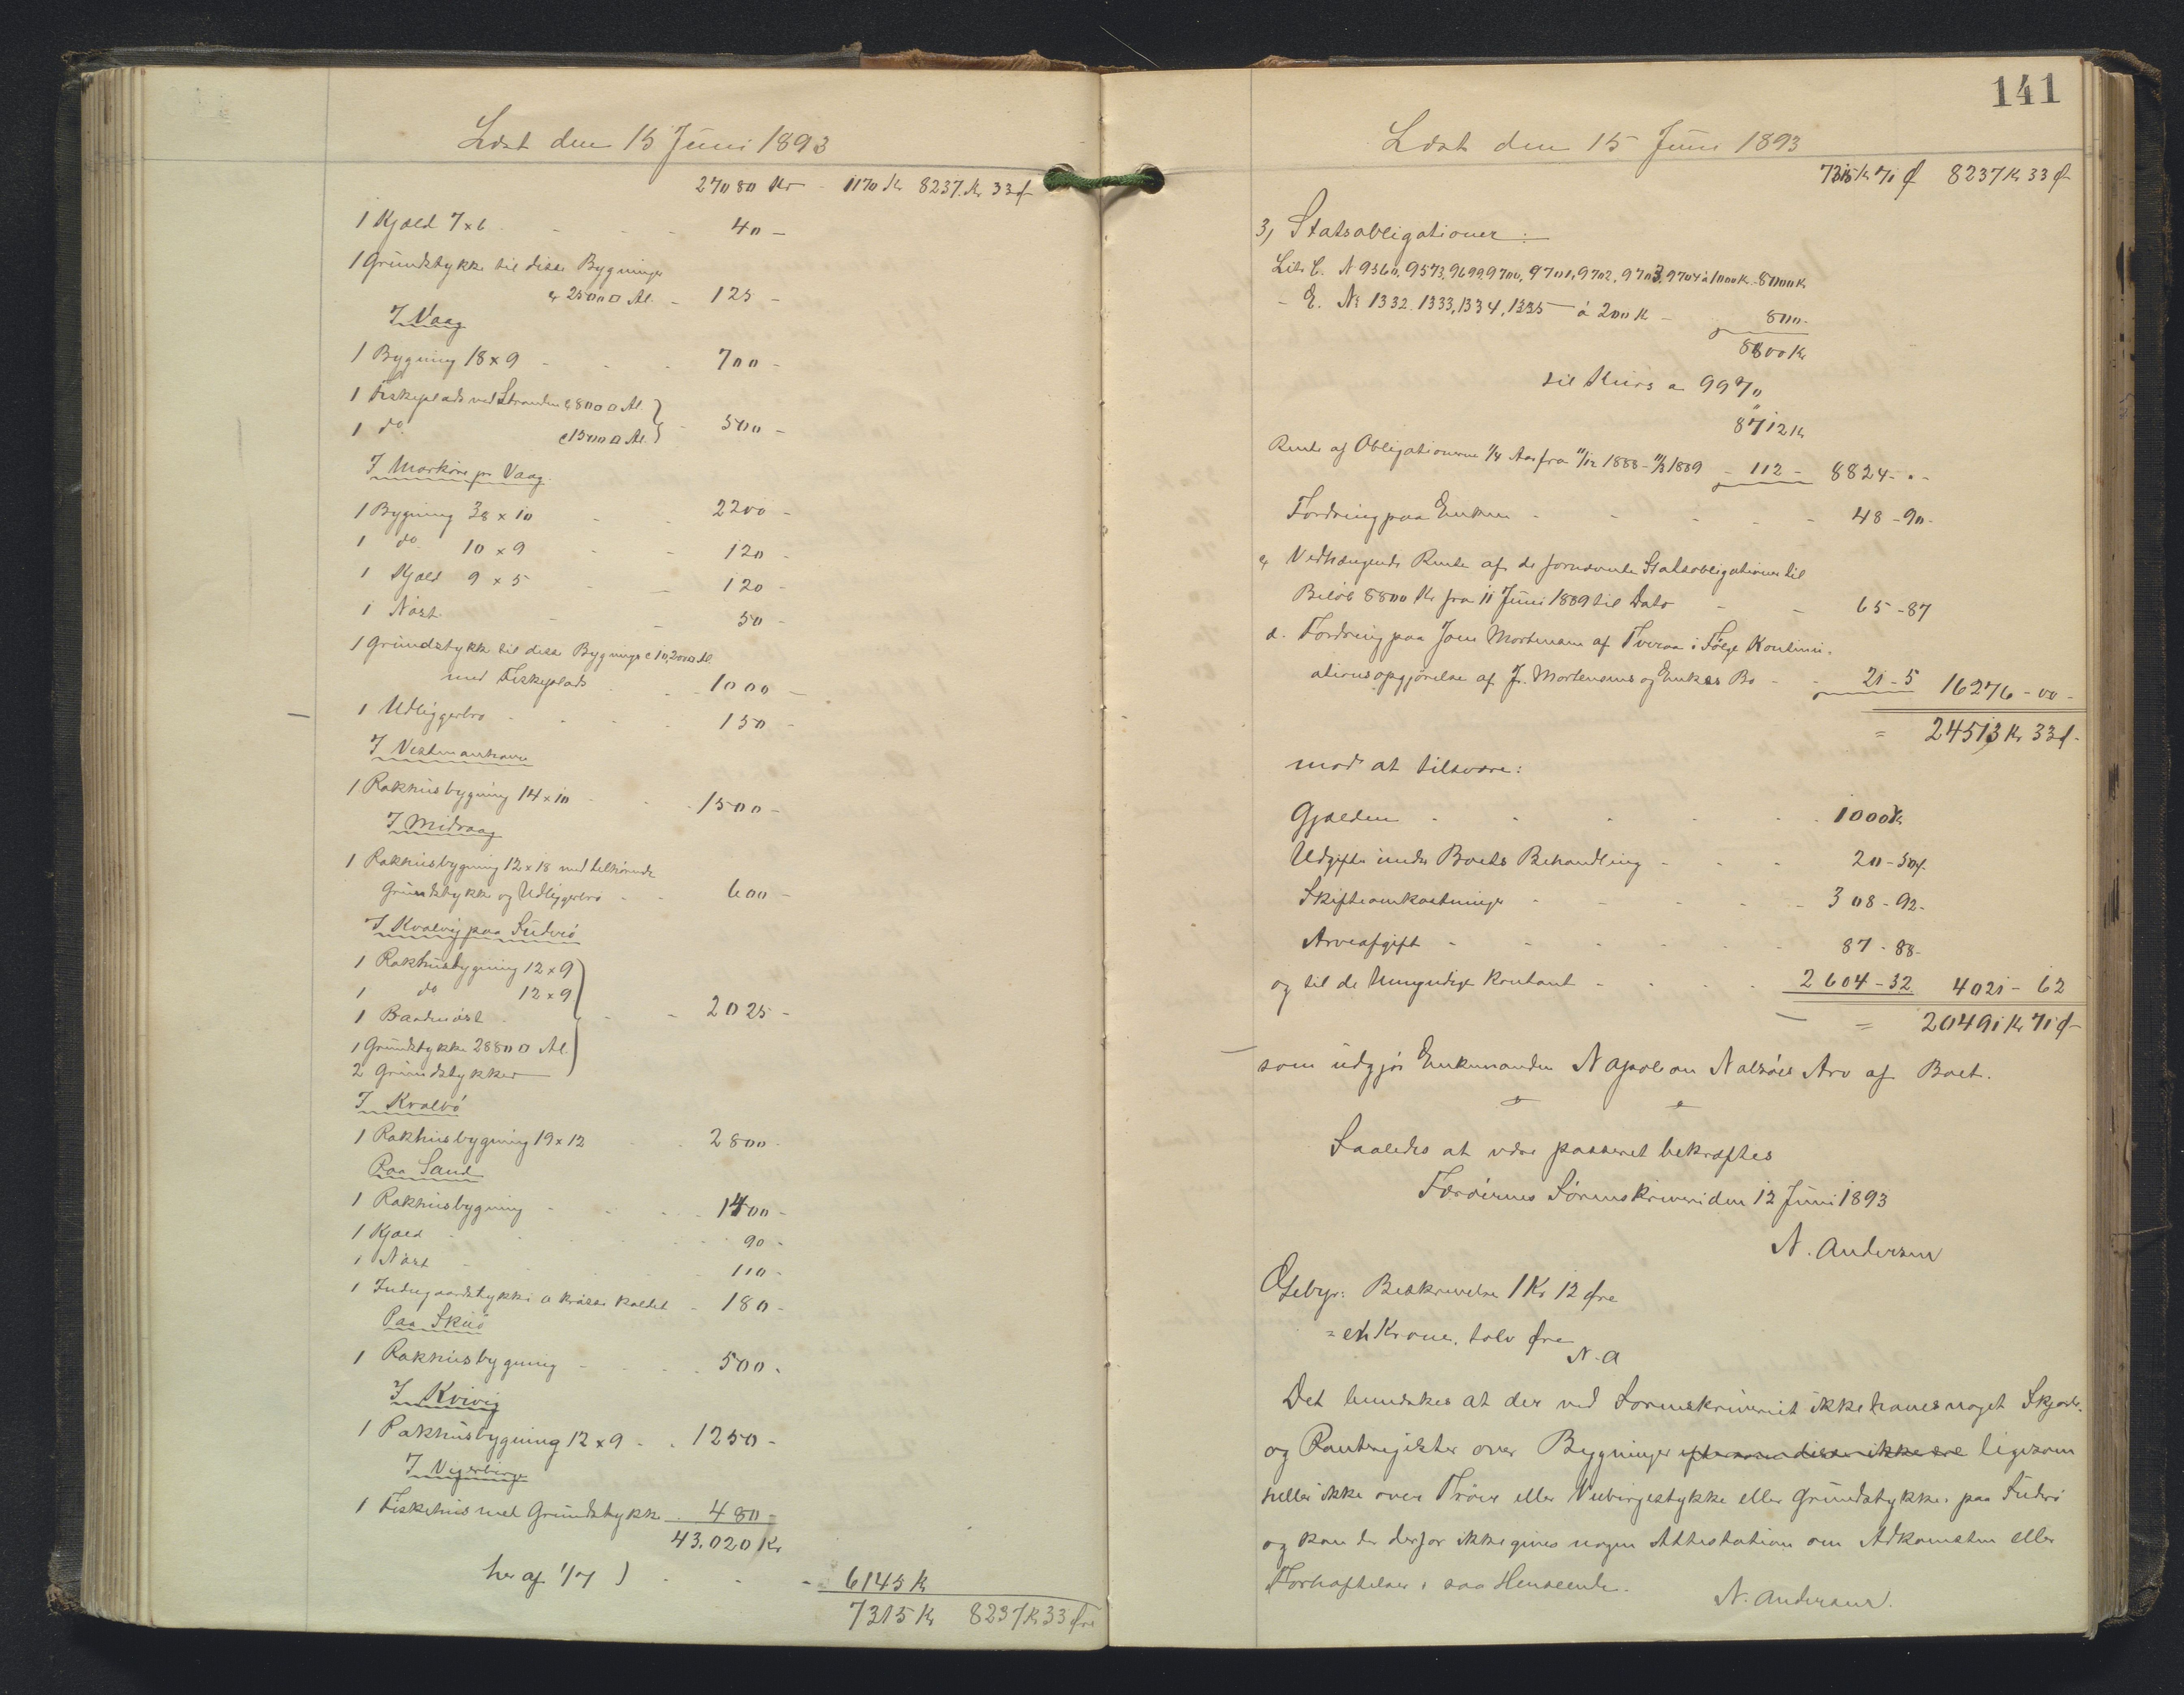 Læst den 15 Juni 1893
27080 Kr - 1170 Kr 8237 Kr 33 Ø
1 Kjald 7 x 6 - - - 40 -
1 Grundstykke til disse Bygninger
c. 2500 □ Al. - 125 -
I Vaag
1 Bygning 18 x 9 - - - 700 -
1 Fiskeplads ved Stranden c 800 □ Al.
1 do. c 1500 □ Al. - 500 -
I Morkøre pr Vaag.
1 Bygning 38 x 10 - - 2200 -
1 do. 10 x 9 - - 120 -
1 Kjald 9 x 5 - - 120 -
1 Nøst. - - 50 -
1 Grundstykke til disse Bygninger c 10,200 □ Al.
med Fiskeplads - - 1000 -
1 Udliggerbro - - - 150 -
I Vestmanhavn
1 Pakhusbygning 14 x 10 - - 1500 -
I Midvaag
1 Pakhusbygning 12 x 18 med tilhørende
Grundstykke og Udliggerbro - - 600 -
I Kvalvig paa Suderø
1 Pakhusbygning 12 x 9
1 do 12 x 9
1 Baadnøst - - 2025 -
1 Grundstykke 2880 □ Al.
2 Grundstykker
I Kralbø
1 Pakhusbygning 19 x 12 - 2800 -
Paa Sand
1 Pakhusbygning - - - 1400 -
1 Kjald - - - 90 -
1 Nøst - - - 110 -
1 Indegaardstykke a krasse kaldet - 180 -
Paa Skuø
1 Pakhusbygning - - - 500 -
I Kvivig
1 Pakhusbygning 12 x 9 - - 1250 -
1 Fiskehus med Grundstykke - 480 -
43.020 Kr
her af 1/7 ) - - - 6145 K
7315 Kr 8237 Kr 33 Øre
141
Læst den 15 Juni 1893
7315 Kr 71 Ø 8237 Kr 33 Ø
3, Statsobligationer:
Litr C. N 9560, 9573, 9699, 9700, 9701, 9702, 9703, 9704 à 1000 K - 8000 K
- E. No 1332. 1333, 1334, 1335 - à 200 K - 800 -
8800 Kr
til Kurs a 99 %
8712 Kr
Rente af Obligationerne 1/4 Aar fra 11/12 1888 - 11/3 1889 - 112 - 8824 - -
Fordring paa Enken - - - - 48 - 90 -
c, Vedhængende Rente af de fornævnte Statsobligationer til
Beløb 8800 Kr fra 11 Juni 1889 til Dato - - 65 - 87
d. Fordring paa Jens Mortensen af Tveraa i Følge Kontinu-
ationsopgjørelse af J. Mortensens og Enkes Bo - - 21 - 5 16276 - 00 -
= 24513 Kr 33 Ø -
mod at tilsvare:
Gjælden - - - - - 1000 Kr
Udgifter under Boets Behandling - - - 20 - 50 Ø.
Skifteomkostninger - - - - 308 - 92 -
Arveafgift - - - - - 87 - 88 -
og til de Umyndige Kontant - - - - 2604 - 32 4021 - 62
= 20491 Kr 71 Ø -
som udgjør Enkemanden Napoleon Nolsøes Arv af Boet.
Saaledes at være passeret bekræftes
Færøernes Sorenskriveri den 12 Juni 1893
N. Andersen
Gebyr: Beskrivelse 1 Kr 12 Øre
= en Krone, tolv Øre
N. A
Det bemærkes at der ved Sorenskriveriet ikke haves noget Skjøde-
og Panteregister over Bygninger eftersom disse ikke ere ligesom
heller ikke over Trøer eller Veebirgestykke eller Grundstykke. paa Suderø
og kan der derfor ikke gives nogen Attestation om Adkomsten eller
Forhæftelser i saa Henseende.
N. Andersen.